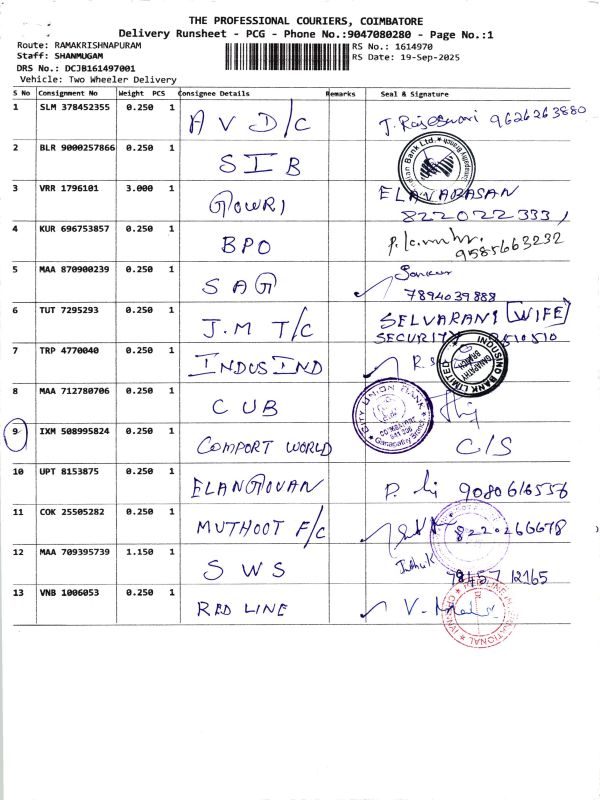 THE PROFESSIONAL COURIERS, COIMBATORE
Delivery Runsheet - PCG - Phone No.:9047080280 - Page No.:1
Route: RAMAKRISHNAPURAM RS No.: 1614970
Staff: SHANMUGAM RS Date: 19-Sep-2025
DRS No.: DCJB161497001
Vehicle: Two Wheeler Delivery
S No Consignment No Weight PCS Consignee Details Remarks Seal & Signature
1 SLM 378452355 0.250 1 A V D/C T. Rajeswari 9626263880
2 BLR 9000257866 0.250 1 SIB
3 VRR 1796101 3.000 1 GOWRI ELAVARASAN
8220223331
4 KUR 696753857 0.250 1 BPO
9585663232
5 MAA 870900239 0.250 1 SAG
7894039888
6 TUT 7295293 0.250 1 J.M T/C SELVARANI [WIFE]
SECURITY
7 TRP 4770040 0.250 1 INDUSIND R.
INDUSIND BANK LIMITED
GANAPATHY BRANCH
8 MAA 712780706 0.250 1 CUB
CITY UNION BANK
COIMBATORE
Ganapathy Branch
9 IXM 508995824 0.250 1 COMPORT WORLD C/S
10 UPT 8153875 0.250 1 ELANGOVAN 9080616556
11 COK 25505282 0.250 1 MUTHOOT F/C 8220266678
12 MAA 709395739 1.150 1 SWS
78457 12165
13 VNB 1006053 0.250 1 RED LINE V.